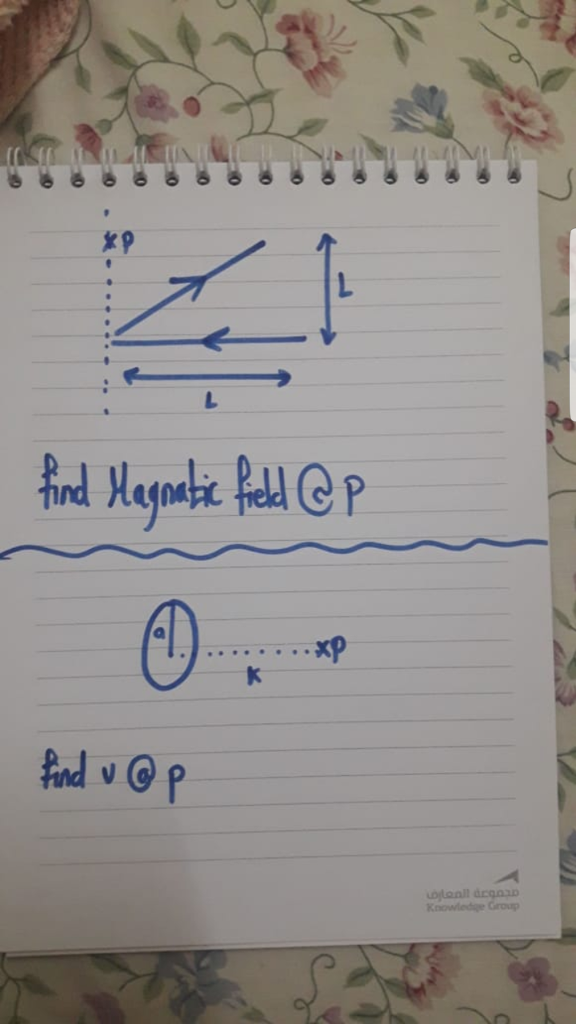 x P
L
L
find Magnatic field @ P
a
x P
K
find v @ p
مجموعة المعارف
Knowledge Group